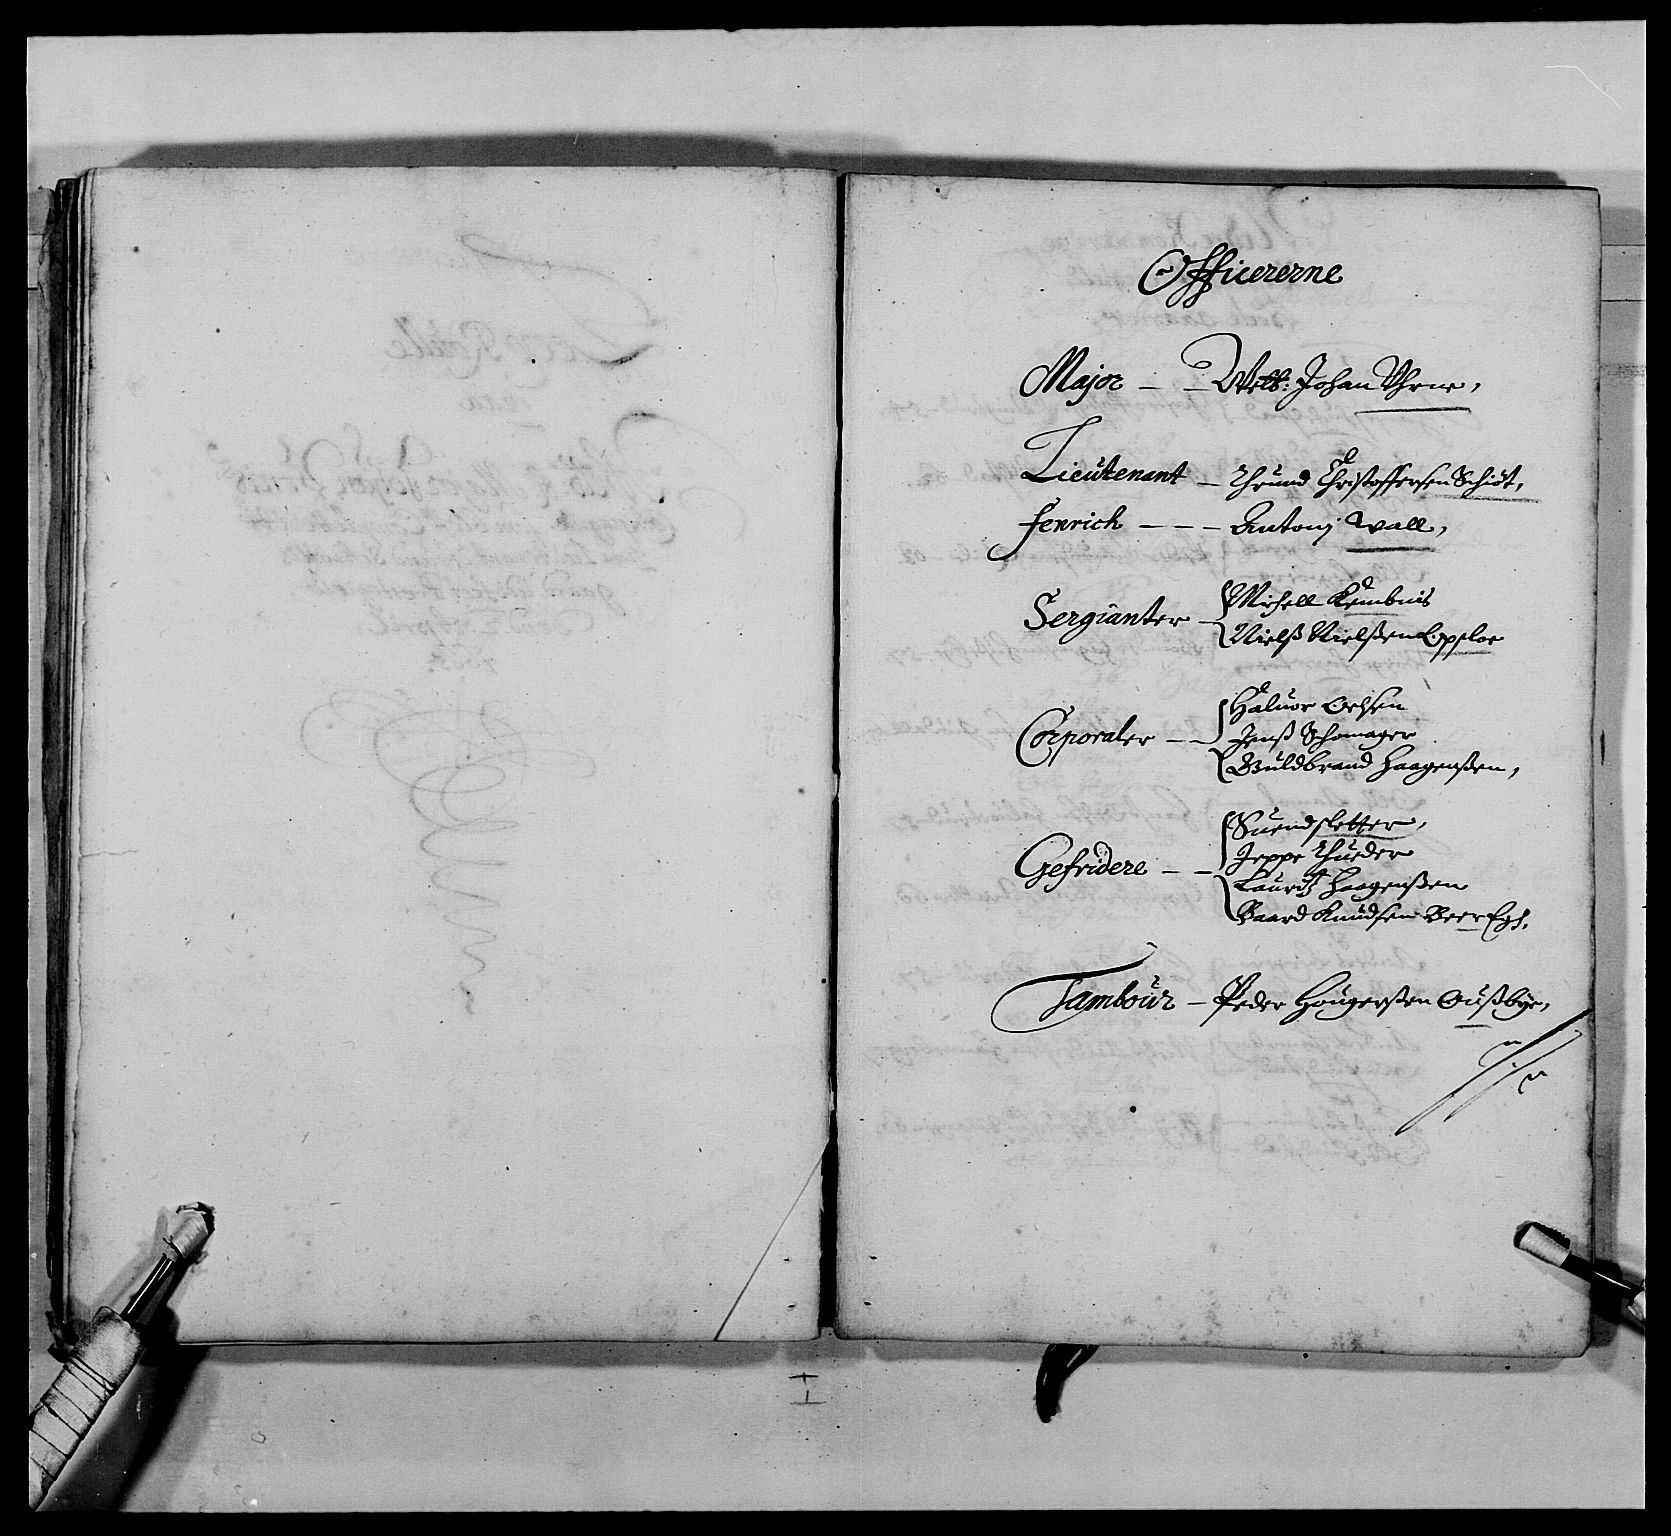 Officererne
Major — — Welb: Johan Uhrne,
Lieutenant — Thrund Christoffersen Schiøt,
Fenrich — — — Antonj Wall,
Sergianter — Michell Kembnis
Nielß Nielßen Eppeloe
Corporaler — — Haluor Oelsen
Jenß Schomager
Guldbrand Haagenßen,
Gefridere — — Suendsletter,
Jeppe Thueder
Lauritz Haagenßen
Baard Knudsen Beer Egh.
Tambour — Peder Hougerßen Oußbye,